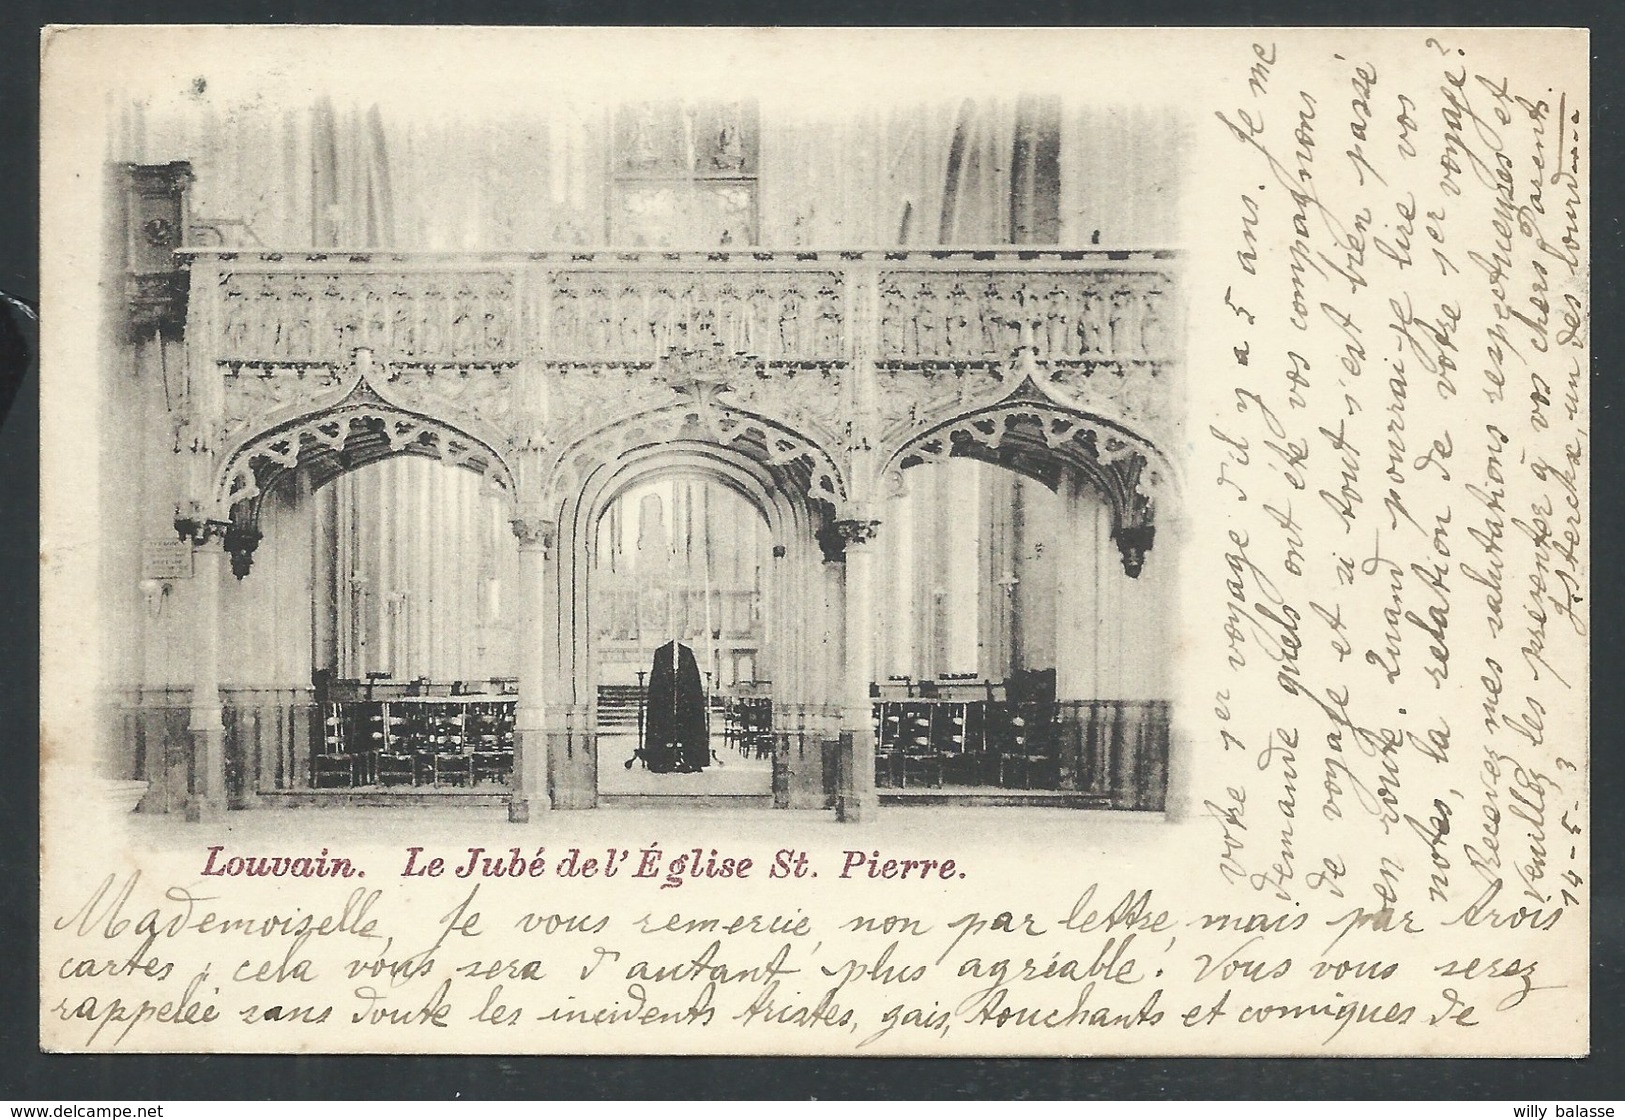 Louvain. Le Jubé de l'Église St. Pierre.
Mademoiselle, Je vous remercie, non par lettre, mais par trois
cartes ; cela vous sera d'autant plus agréable ! Vous vous serez
rappelée sans doute les incidents tristes, gais, touchants et comiques de
votre 1er voyage d'il y a 5 ans. Je me
demande quels ont été vos compagnons
de voyage et si tout s'est bien passé
en route. Quand pourrai-je lire vos
notes, la relation de votre 1er voyage ?
Recevez mes salutations respectueuses et
veuillez les présenter à vos chers Parents.
14-5-3 un des lourd
willy balasse